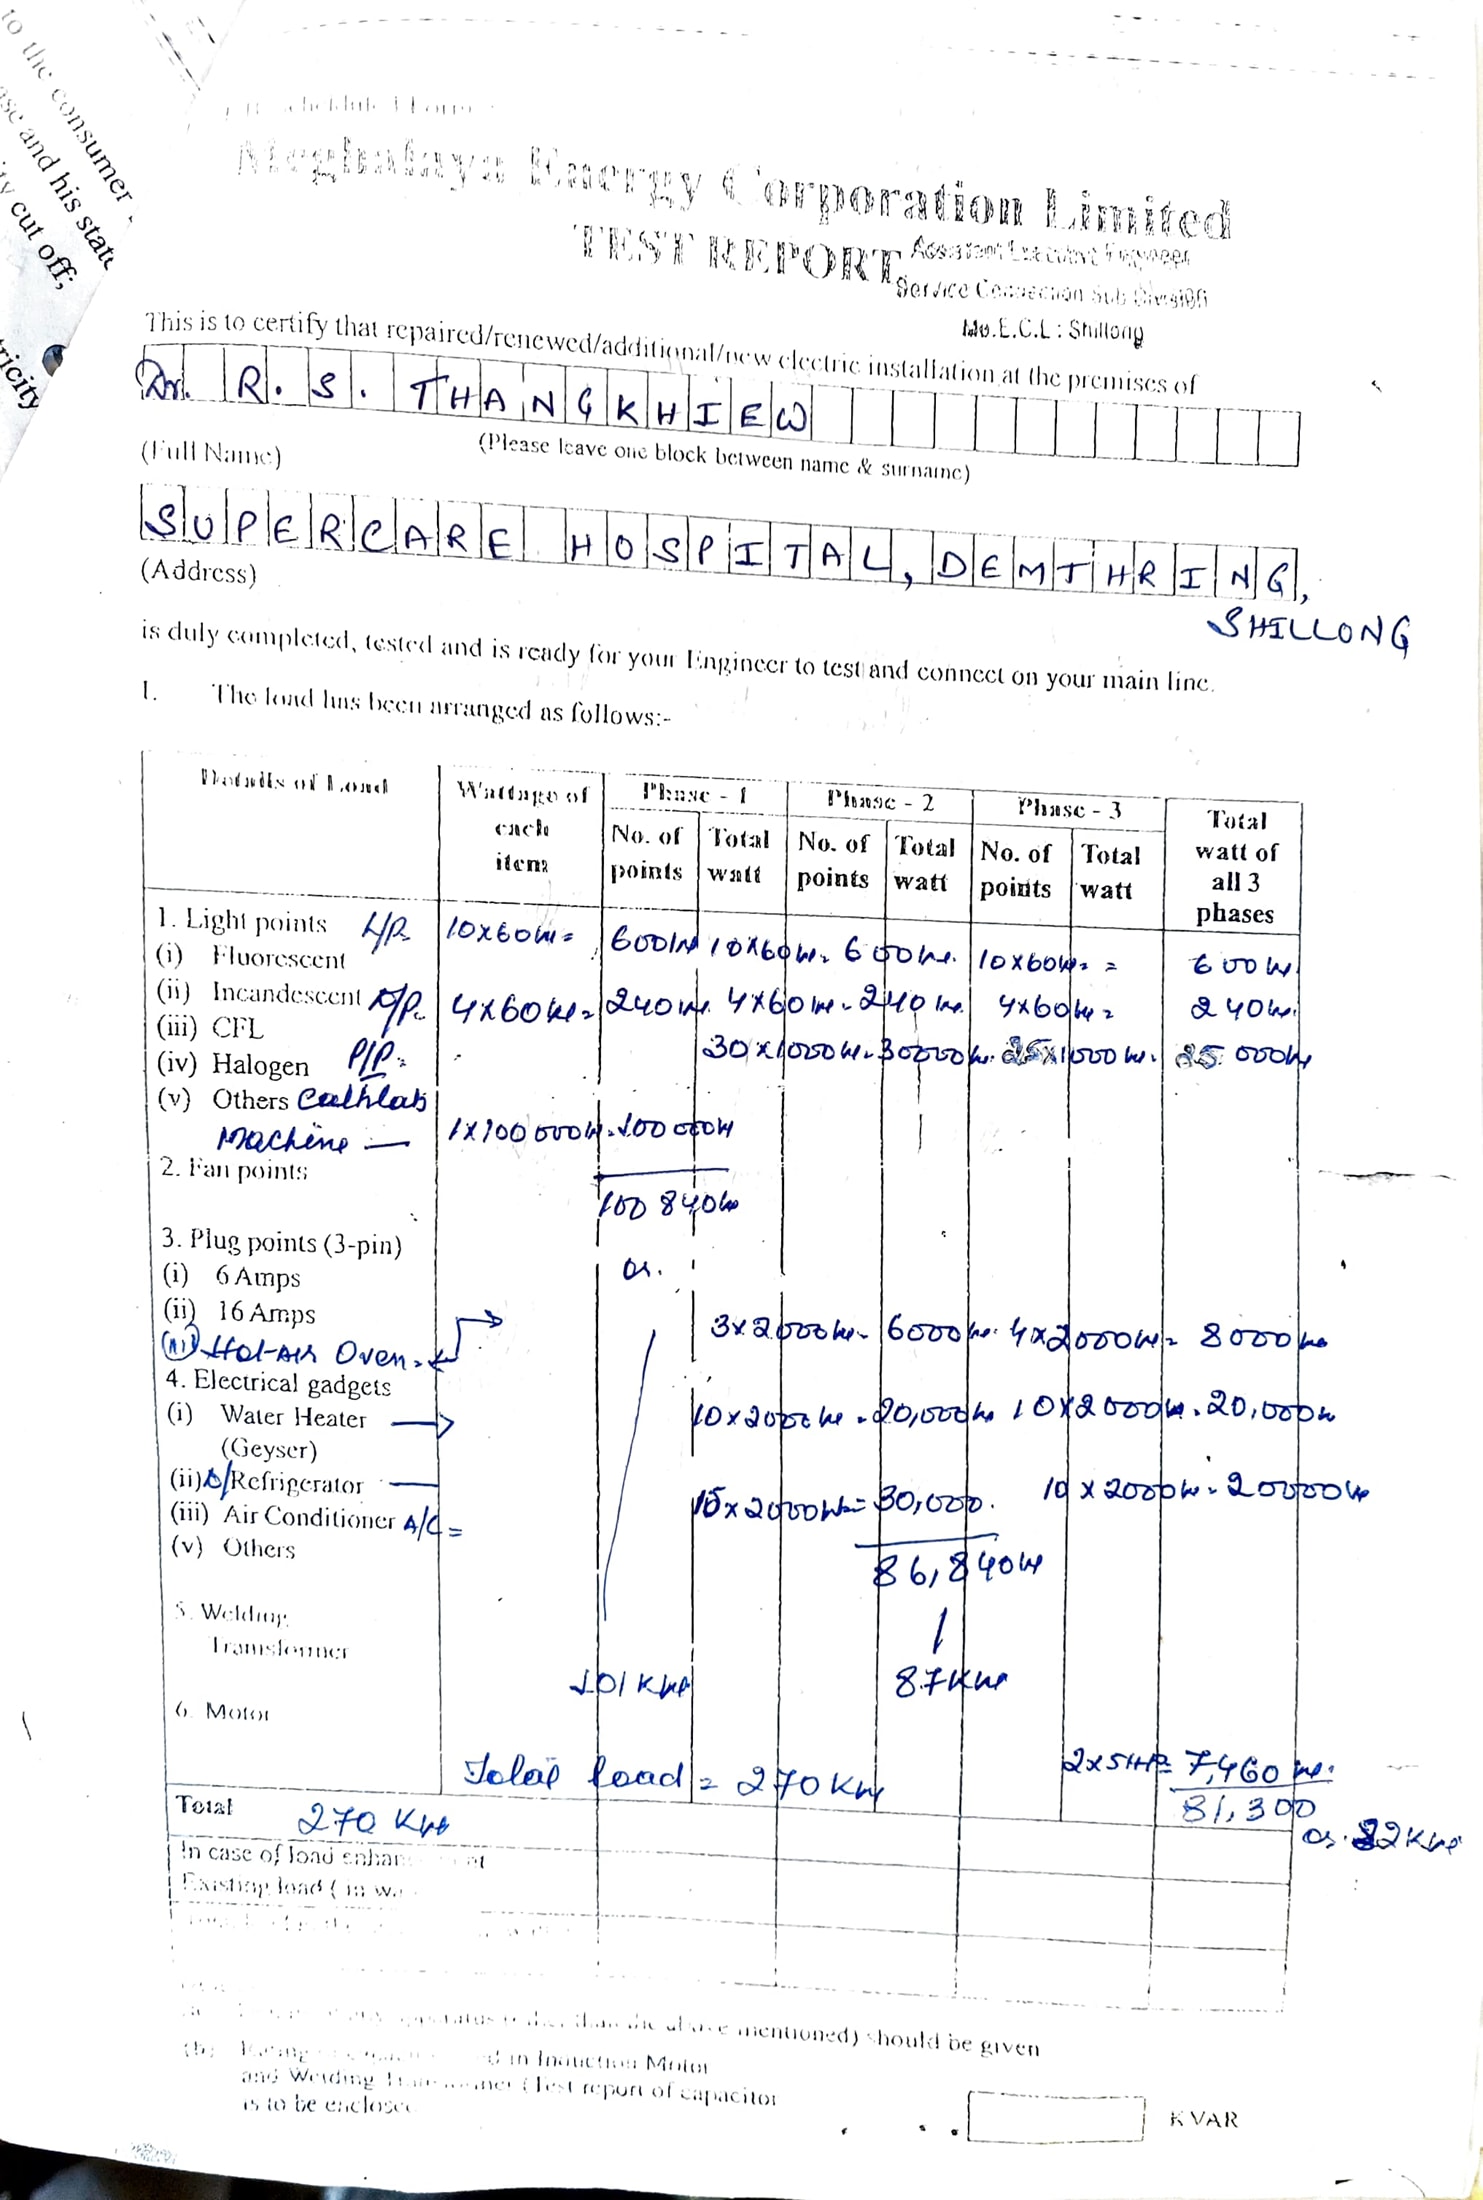 to the consumer
ase and his state
ity cut off;
ricity
Meghalaya Energy Corporation Limited
TEST REPORT
Assistant Executive Engineer
Service Connection Sub Division
Me.E.C.L : Shillong
This is to certify that repaired/renewed/additional/new electric installation at the premises of
Dr. R. S. THANGKHIEW
(Full Name) (Please leave one block between name & surname)
SUPERCARE HOSPITAL, DEMTHRING,
SHILLONG
(Address)
is duly completed, tested and is ready for your Engineer to test and connect on your main line.
1. The load has been arranged as follows:-
Details of Load Wattage of each item Phase - 1 Phase - 2 Phase - 3 Total watt of all 3 phases
No. of points Total watt No. of points Total watt No. of points Total watt
1. Light points L/P. 10x60w= 600w 10x60w= 600w. 10x60w= = 600w
(i) Fluorescent
(ii) Incandescent P/P. 4x60w= 240w. 4x60w= 240w. 4x60w= 240w.
(iii) CFL
(iv) Halogen P/P= 30x1000w= 30000w. 25x1000w= 25000w
(v) Others Cathlab
Machine — 1x100000w=100000w
2. Fan points
100840w
3. Plug points (3-pin)
or.
(i) 6 Amps
(ii) 16 Amps
(iii) Hot-Air Oven= 3x2000w= 6000w. 4x2000w= 8000w
4. Electrical gadgets
(i) Water Heater 10x2000w=20,000w 10x2000w=20,000w
(Geyser)
(ii) Refrigerator
(iii) Air Conditioner A/C= 15x2000w=30,000. 10x2000w=20000w
(v) Others
86,840w
5. Welding
Transformer
101 Kw 87Kw
6. Motor
2x5HP= 7,460w.
Total load = 270 Kw
81,300
Total 270 Kw
or. 82Kw
In case of load enhan
Existing load ( in wa
mentioned) should be given
(b) Rating d in Induction Motor
and Welding (Test report of capacitor
is to be enclosed
KVAR